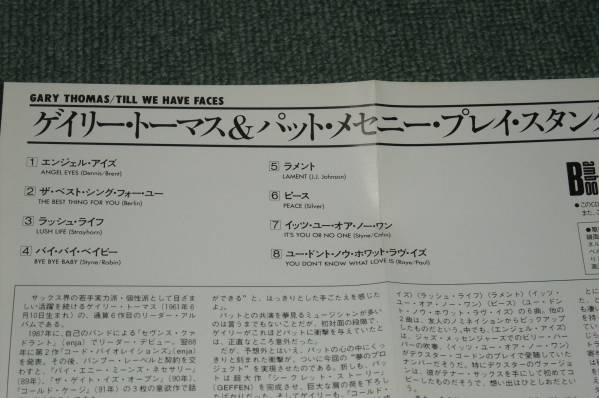 GARY THOMAS/TILL WE HAVE FACES
ゲイリー・トーマス&パット・メセニー・プレイ・スタンダ
1 エンジェル・アイズ
ANGEL EYES (Dennis/Brent)
2 ザ・ベスト・シング・フォー・ユー
THE BEST THING FOR YOU (Berlin)
3 ラッシュ・ライフ
LUSH LIFE (Strayhorn)
4 バイ・バイ・ベイビー
BYE BYE BABY (Styne/Robin)
5 ラメント
LAMENT (J.J. Johnson)
6 ピース
PEACE (Silver)
7 イッツ・ユー・オア・ノー・ワン
IT'S YOU OR NO ONE (Styne/Cahn)
8 ユー・ドント・ノウ・ホワット・ラヴ・イズ
YOU DON'T KNOW WHAT LOVE IS (Raye/Paul)
Bamboo
●このCD
サックス界の若手実力派・個性派として目ざま
しい活躍を続けるゲイリー・トーマス(1961年6
月10日生まれ)の、通算6作目のリーダー・アル
バムである。
1987年に、自己のバンドによる「セヴンス・クァ
ドラント」(enja)でリーダー・デビュー。翌88
年に第2作「コード・バイオレイションズ」(enja)
を発表。その後、バンブー・レーベルと契約を交
わすと、「バイ・エニー・ミーンズ・ネセサリー」
(89年)、「ザ・ゲイト・イズ・オープン」(90年)、
「コールド・ケージ」(91年)の3枚の意欲作で話
ができる”と、はっきりとした手ごたえを感じた
よ。」
パットとの共演を夢見るミュージシャンが多い
のは言うまでもないことだが、初対面の段階で、
ゲイリーがこれほどパットに衝撃を与えていたと
は、正直なところ意外だった。
だが、予想外とはいえ、パットの心の中にくっ
きりと刻まれた衝撃が、ついに今回の“夢のプロ
ジェクト”を実現させたのである。折しも、パッ
トは超大作「シークレット・ストーリー」
(GEFFEN)を完成させ、巨大な肩の荷を下ろし
たばかりだった。そしてゲイリーも、「コールド・
イズ)(ラッシュ・ライフ)(ラメント)(イッツ・
ユー・オア・ノー・ワン)(ピース)(ユー・ドン
ト・ノウ・ホワット・ラヴ・イズ)の6曲。他の
2曲は、友人のノミネイションからピックアップ
したものだという。中でも、(エンジェル・アイズ)
は、ジャズ・メッセンジャーズでのビリー・ハー
パーの吹奏、(イッツ・ユー・オア・ノー・ワン)
がデクスター・ゴードンのプレイで愛聴していた
ナンバーだそうだ。特にデクスターのヴァージョ
ンは、彼がテナー・サックスを手にして初めてコ
ピーしたものだそうで、想い出はひとしおだとい
う。